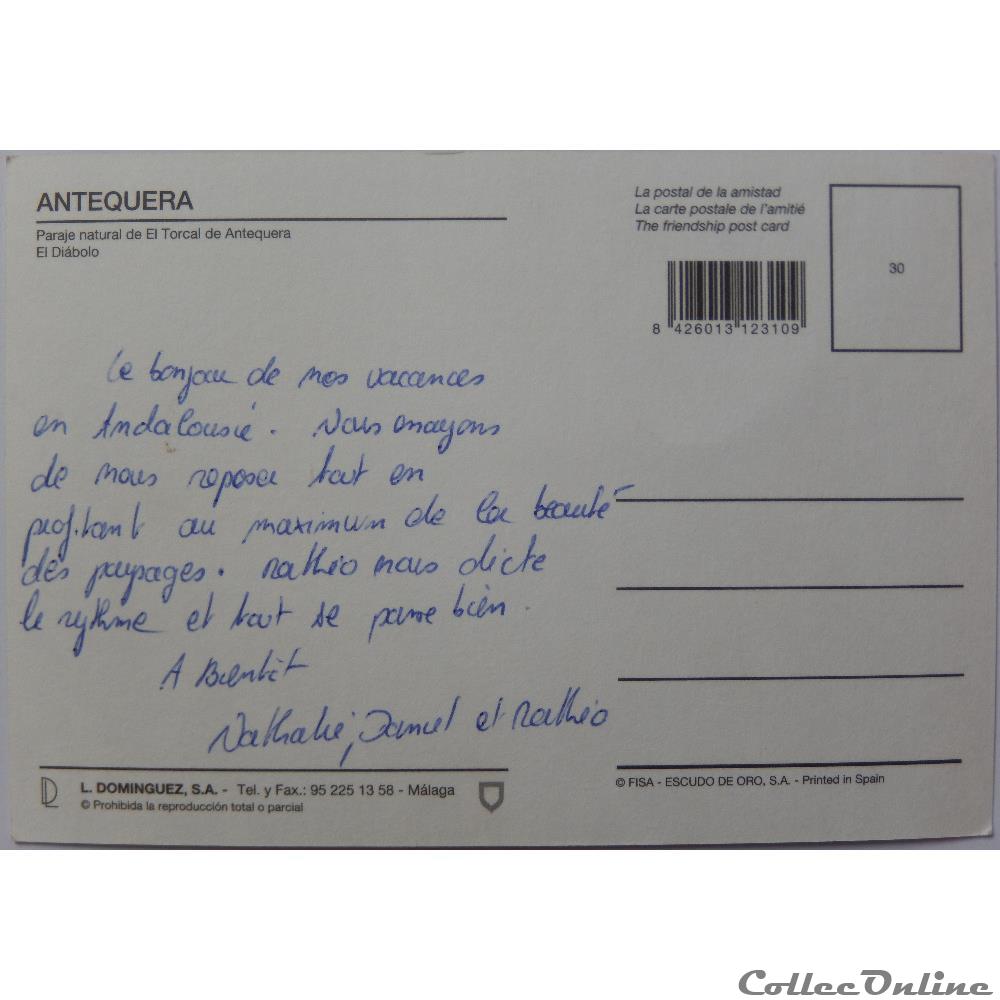 ANTEQUERA
Paraje natural de El Torcal de Antequera
El Diábolo
La postal de la amistad
La carte postale de l'amitié
The friendship post card
30
8 426013 123109
Le bonjour de nos vacances
en Andalousie. Nous essayons
de nous reposer tout en
profitant au maximum de la beauté
des paysages. Mathéo nous dicte
le rythme et tout se passe bien.
A Bientôt
Nathalie, Daniel et Mathéo
L. DOMINGUEZ, S.A. - Tel. y Fax.: 95 225 13 58 - Málaga
© Prohibida la reproducción total o parcial
© FISA - ESCUDO DE ORO, S.A. - Printed in Spain
CollecOnline